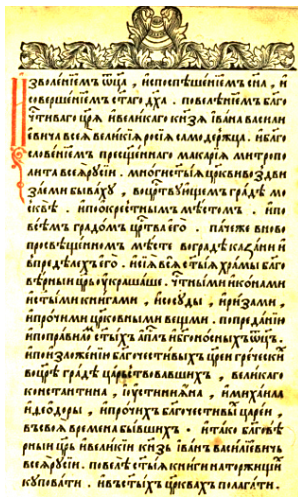 Изволенїемъ ѿца , и҆споспѣшенїемъ сн҃а , и҆
совершенїемъ ст҃аго дх҃а . повелѣнїемъ благо
чтⷭ҇иваго цр҃ѧ и҆великаго кн҃зѧ і҆ва́на васили
евича всеѧ̀ вели́кїѧ росїѧ самодержца . и҆благо
словенїемъ прес҃щеннаго макарїѧ митропо
лита всеѧ̀рꙋсїи . мнѡги ст҃ыѧ цр҃кви воздви
заеми быва́хꙋ , воцр҃ствꙋющемъ гра́дѣ мо
сквѣ̀ . и҆поѡ҆крестнымъ мѣстомъ . и҆по
всѣмъ градомъ цр҃тва е҆го̀ . паче́же вно́во
просвѣщенномъ мѣсте во градѣ каза́ни и҆
впредѣлехъ е҆го̀ . и҆сїѧ̀ всѧ̀ ст҃ыѧ хра́мы благо
вѣрныи цр҃ь оу҆краша́ше . чтⷭ҇ными и҆конами
и҆ст҃ыми книгами , и҆сосꙋды , и҆ри́зами ,
и҆про́чими цр҃ковными вещми . попреда́нїю
и҆поправиломъ ст҃ыхъ а҆пⷭ҇лъ и҆бг҃оно́сныхъ ѿц҃ъ .
и҆поизложе́нїю благочести́выхъ цр҃еи гре́чески
воцр҃ѣ гра́дѣ ца́рьствовавшихъ , вели́каго
константи́на , і҆ꙋстинїа́на , и҆михаи́ла
и҆ѳео́доры , и҆про́чихъ благочести́выхъ цареи ,
въсвоѧ̀ времена̀ бы́вшихъ . и҆та́ко благовѣ
рныи цр҃ь и҆вели́кїи кн҃зь і҆ва́нъ васи́лїевичь
всеѧ̀рꙋсїи . повелѣ̀ ст҃ыѧ кни́ги на торжищи
кꙋпова́ти . и҆въст҃ы́хъ цр҃ква́хъ полага́ти .